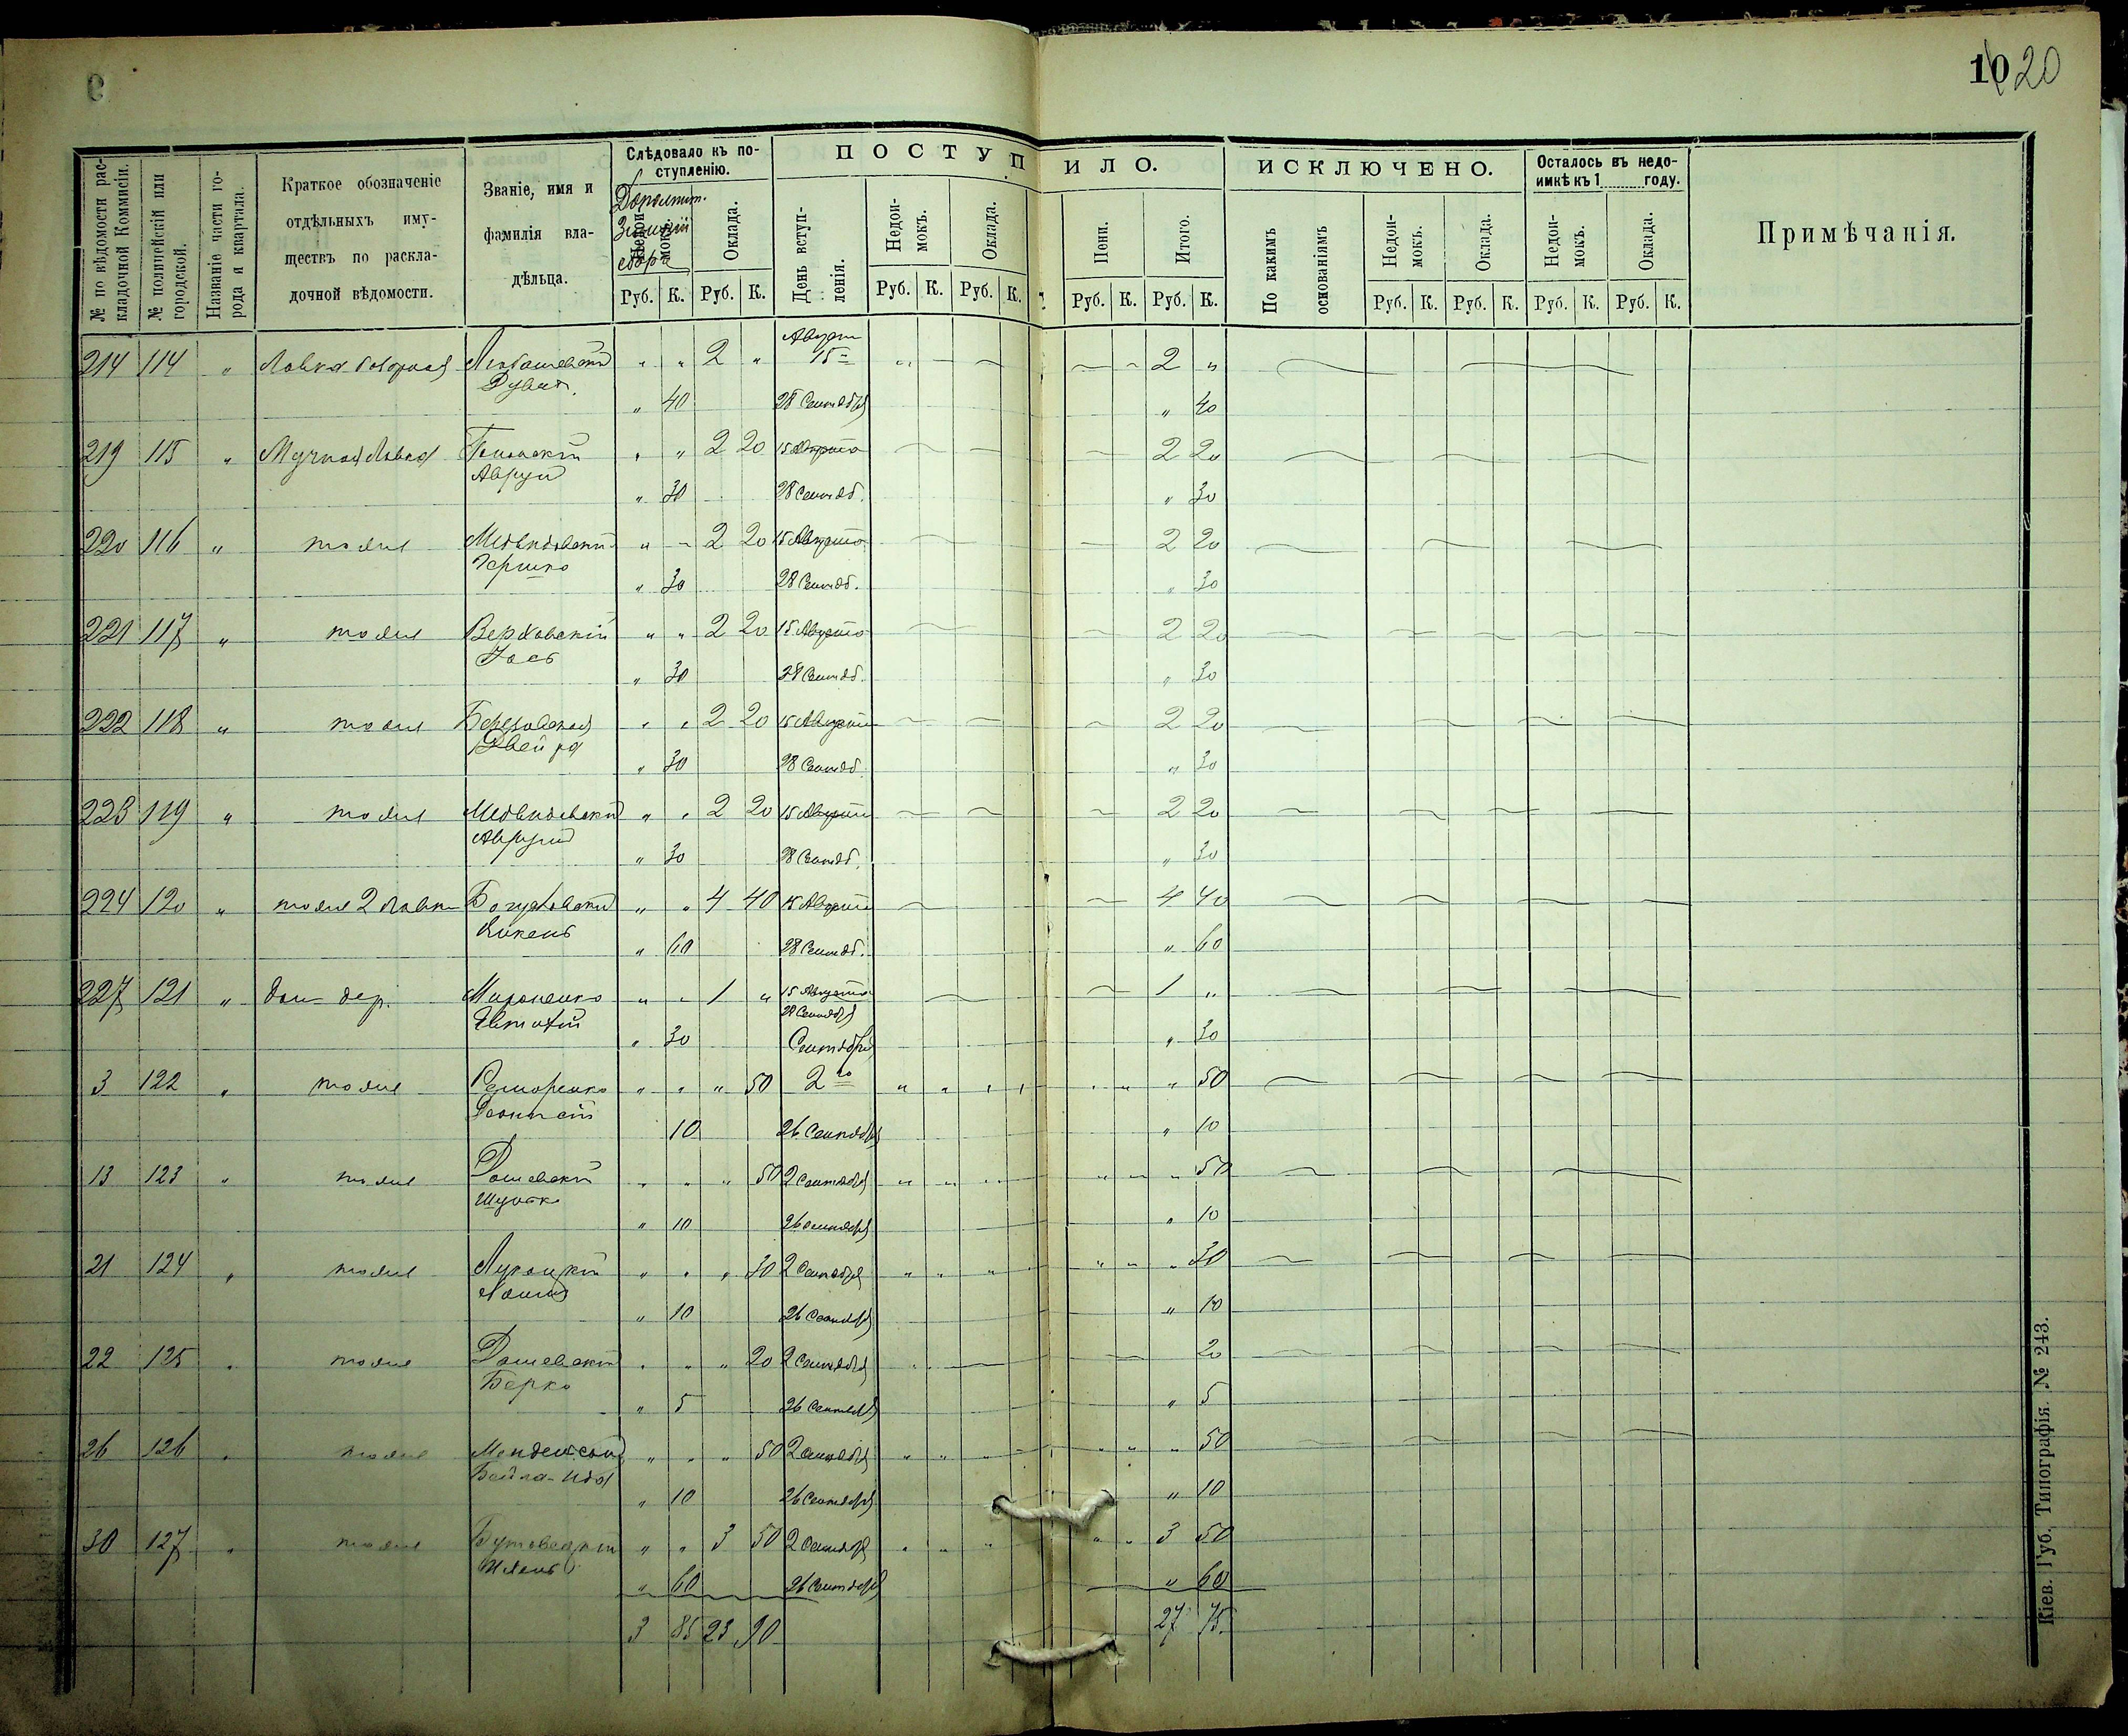 10 20
№ по вѣдомости рас-
кладочной Коммисіи.
№ полицейскій или
городской.
Названіе части го-
рода и квартала.
Краткое обозначеніе
отдѣльныхъ иму-
ществъ по раскла-
дочной вѣдомости.
Званіе, имя и
фамилія вла-
дѣльца.
Слѣдовало къ по-
ступленію.
Недои-
мокъ.
Оклада.
Руб. К. Руб. К.
ПОСТУПИЛО.
День вступ-
ленія.
Недои-
мокъ.
Оклада.
Пени.
Итого.
Руб. К. Руб. К. Руб. К. Руб. К.
ИСКЛЮЧЕНО.
По какимъ
основаніямъ
Недои-
мокъ.
Оклада.
Руб. К. Руб. К.
Осталось въ недо-
имкѣ къ 1 году.
Недои-
мокъ.
Оклада.
Руб. К. Руб. К.
Примѣчанія.
214 114 " Лавка " " 2 " Август 15 2 "
" 40 28 Сентября " 40
219 115 " Мучная Лавка " " 2 20 15 Августа 2 20
Аврум " 30 28 Сентяб. " 30
220 116 " тоже Медвидовский " 2 20 15 Августа 2 20
Гершко " 30 28 Сентяб. " 30
221 117 " тоже Верховскій " " 2 20 15 Августа 2 20
" 30 28 Сентяб. " 30
222 118 " тоже Березовская " " 2 20 15 Августа 2 20
Двейра " 30 28 Сентяб. " 30
223 119 " тоже Медвидовский " " 2 20 15 Августа 2 20
Аврум " 30 28 Сентяб. " 30
224 120 " тоже 2 лавки Богуславский " " 4 40 15 Августа 4 40
" 60 28 Сентяб. " 60
227 121 " дом дер. Мироненко " " 1 " 15 Августа 1 "
28 Сентября
Евтихий " 30 " 30
Сентября
3 122 " тоже " " " 50 2го " " " " " " " 50
10 26 Сентября " 10
13 123 " тоже Дашевский " " " 50 2 Сентября " " " " " " 50
" 10 26 Сентября " 10
21 124 " тоже " " " 30 2 Сентября " " " " " " 30
" 10 26 Сентября " 10
22 125 " тоже Дашевский " " " 20 2 Сентября " 20
Берко " 5 26 Сентября " 5
26 126 " тоже Мендельсон " " " 50 2 Сентября " " " " " " 50
Бейла-Ида " 10 26 Сентября " 10
30 127 " тоже " " 3 50 2 Сентября " " " " " 3 50
" 60 26 Сентября " 60
3 85 23 90 27 75
Кіев. Губ. Типографія. № 243.